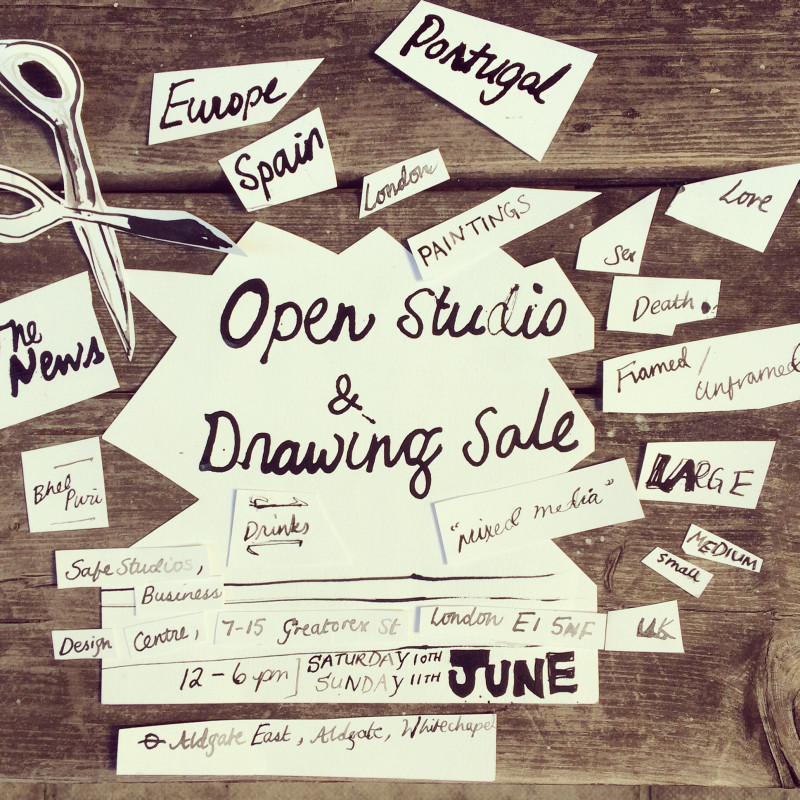 Portugal
Europe
Spain
London
PAINTINGS
Love
Sex
Death.
The
News
Open Studio
&
Drawing Sale
Framed / Unframed
Bhel
Puri
Drinks
"mixed media"
LARGE
MEDIUM
small
Safe Studios,
Business
Design Centre, 7-15 Greatorex St London E1 5NF UK
12-6pm] SATURDAY 10TH JUNE
SUNDAY 11TH
Aldgate East, Aldgate, Whitechapel